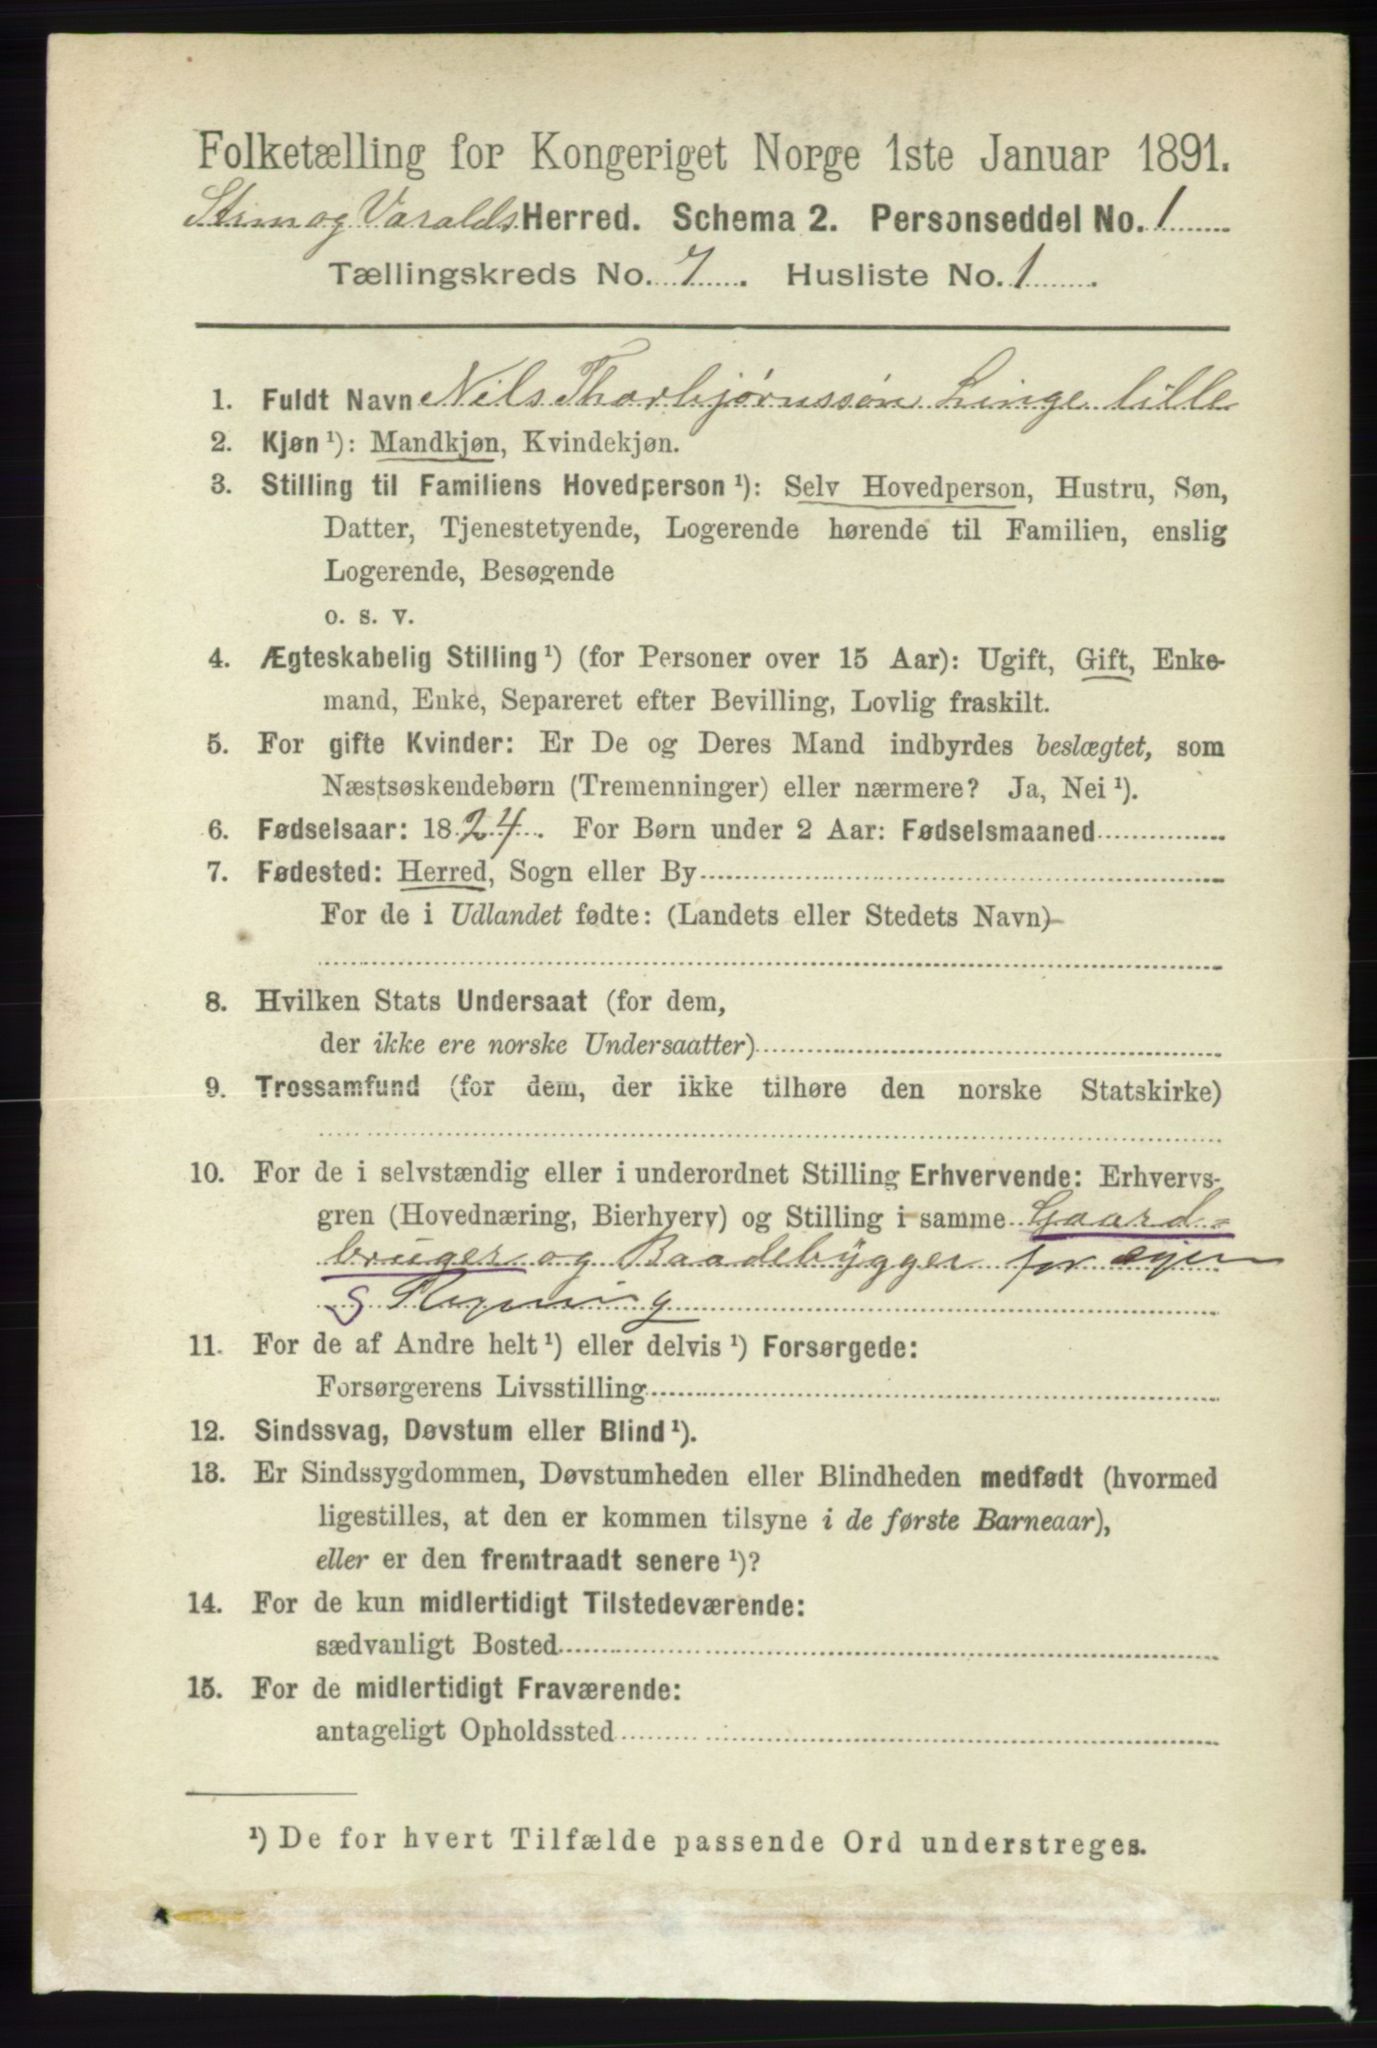 Folketælling for Kongeriget Norge 1ste Januar 1891.
Strim og Varalds Herred. Schema 2. Personseddel No. 1
Tællingskreds No. 7. Husliste No. 1.
1. Fuldt Navn Nils Thorbjørnssøn Linge lille
2. Kjøn ¹): Mandkjøn, Kvindekjøn.
3. Stilling til Familiens Hovedperson ¹): Selv Hovedperson, Hustru, Søn,
Datter, Tjenestetyende, Logerende hørende til Familien, enslig
Logerende, Besøgende
o. s. v.
4. Ægteskabelig Stilling ¹) (for Personer over 15 Aar): Ugift, Gift, Enke-
mand, Enke, Separeret efter Bevilling, Lovlig fraskilt.
5. For gifte Kvinder: Er De og Deres Mand indbyrdes beslægtet, som
Næstsøskendebørn (Tremenninger) eller nærmere? Ja, Nei ¹).
6. Fødselsaar: 1824. For Børn under 2 Aar: Fødselsmaaned
7. Fødested: Herred, Sogn eller By
For de i Udlandet fødte: (Landets eller Stedets Navn)
8. Hvilken Stats Undersaat (for dem,
der ikke ere norske Undersaatter)
9. Trossamfund (for dem, der ikke tilhøre den norske Statskirke)
10. For de i selvstændig eller i underordnet Stilling Erhvervende: Erhvervs-
gren (Hovednæring, Bierhverv) og Stilling i samme Gaard-
bruger og Baadebygger for egen
S Regning
11. For de af Andre helt ¹) eller delvis ¹) Forsørgede:
Forsørgerens Livsstilling
12. Sindssvag, Døvstum eller Blind ¹).
13. Er Sindssygdommen, Døvstumheden eller Blindheden medfødt (hvormed
ligestilles, at den er kommen tilsyne i de første Barneaar),
eller er den fremtraadt senere ¹)?
14. For de kun midlertidigt Tilstedeværende:
sædvanligt Bosted
15. For de midlertidigt Fraværende:
antageligt Opholdssted
¹) De for hvert Tilfælde passende Ord understreges.